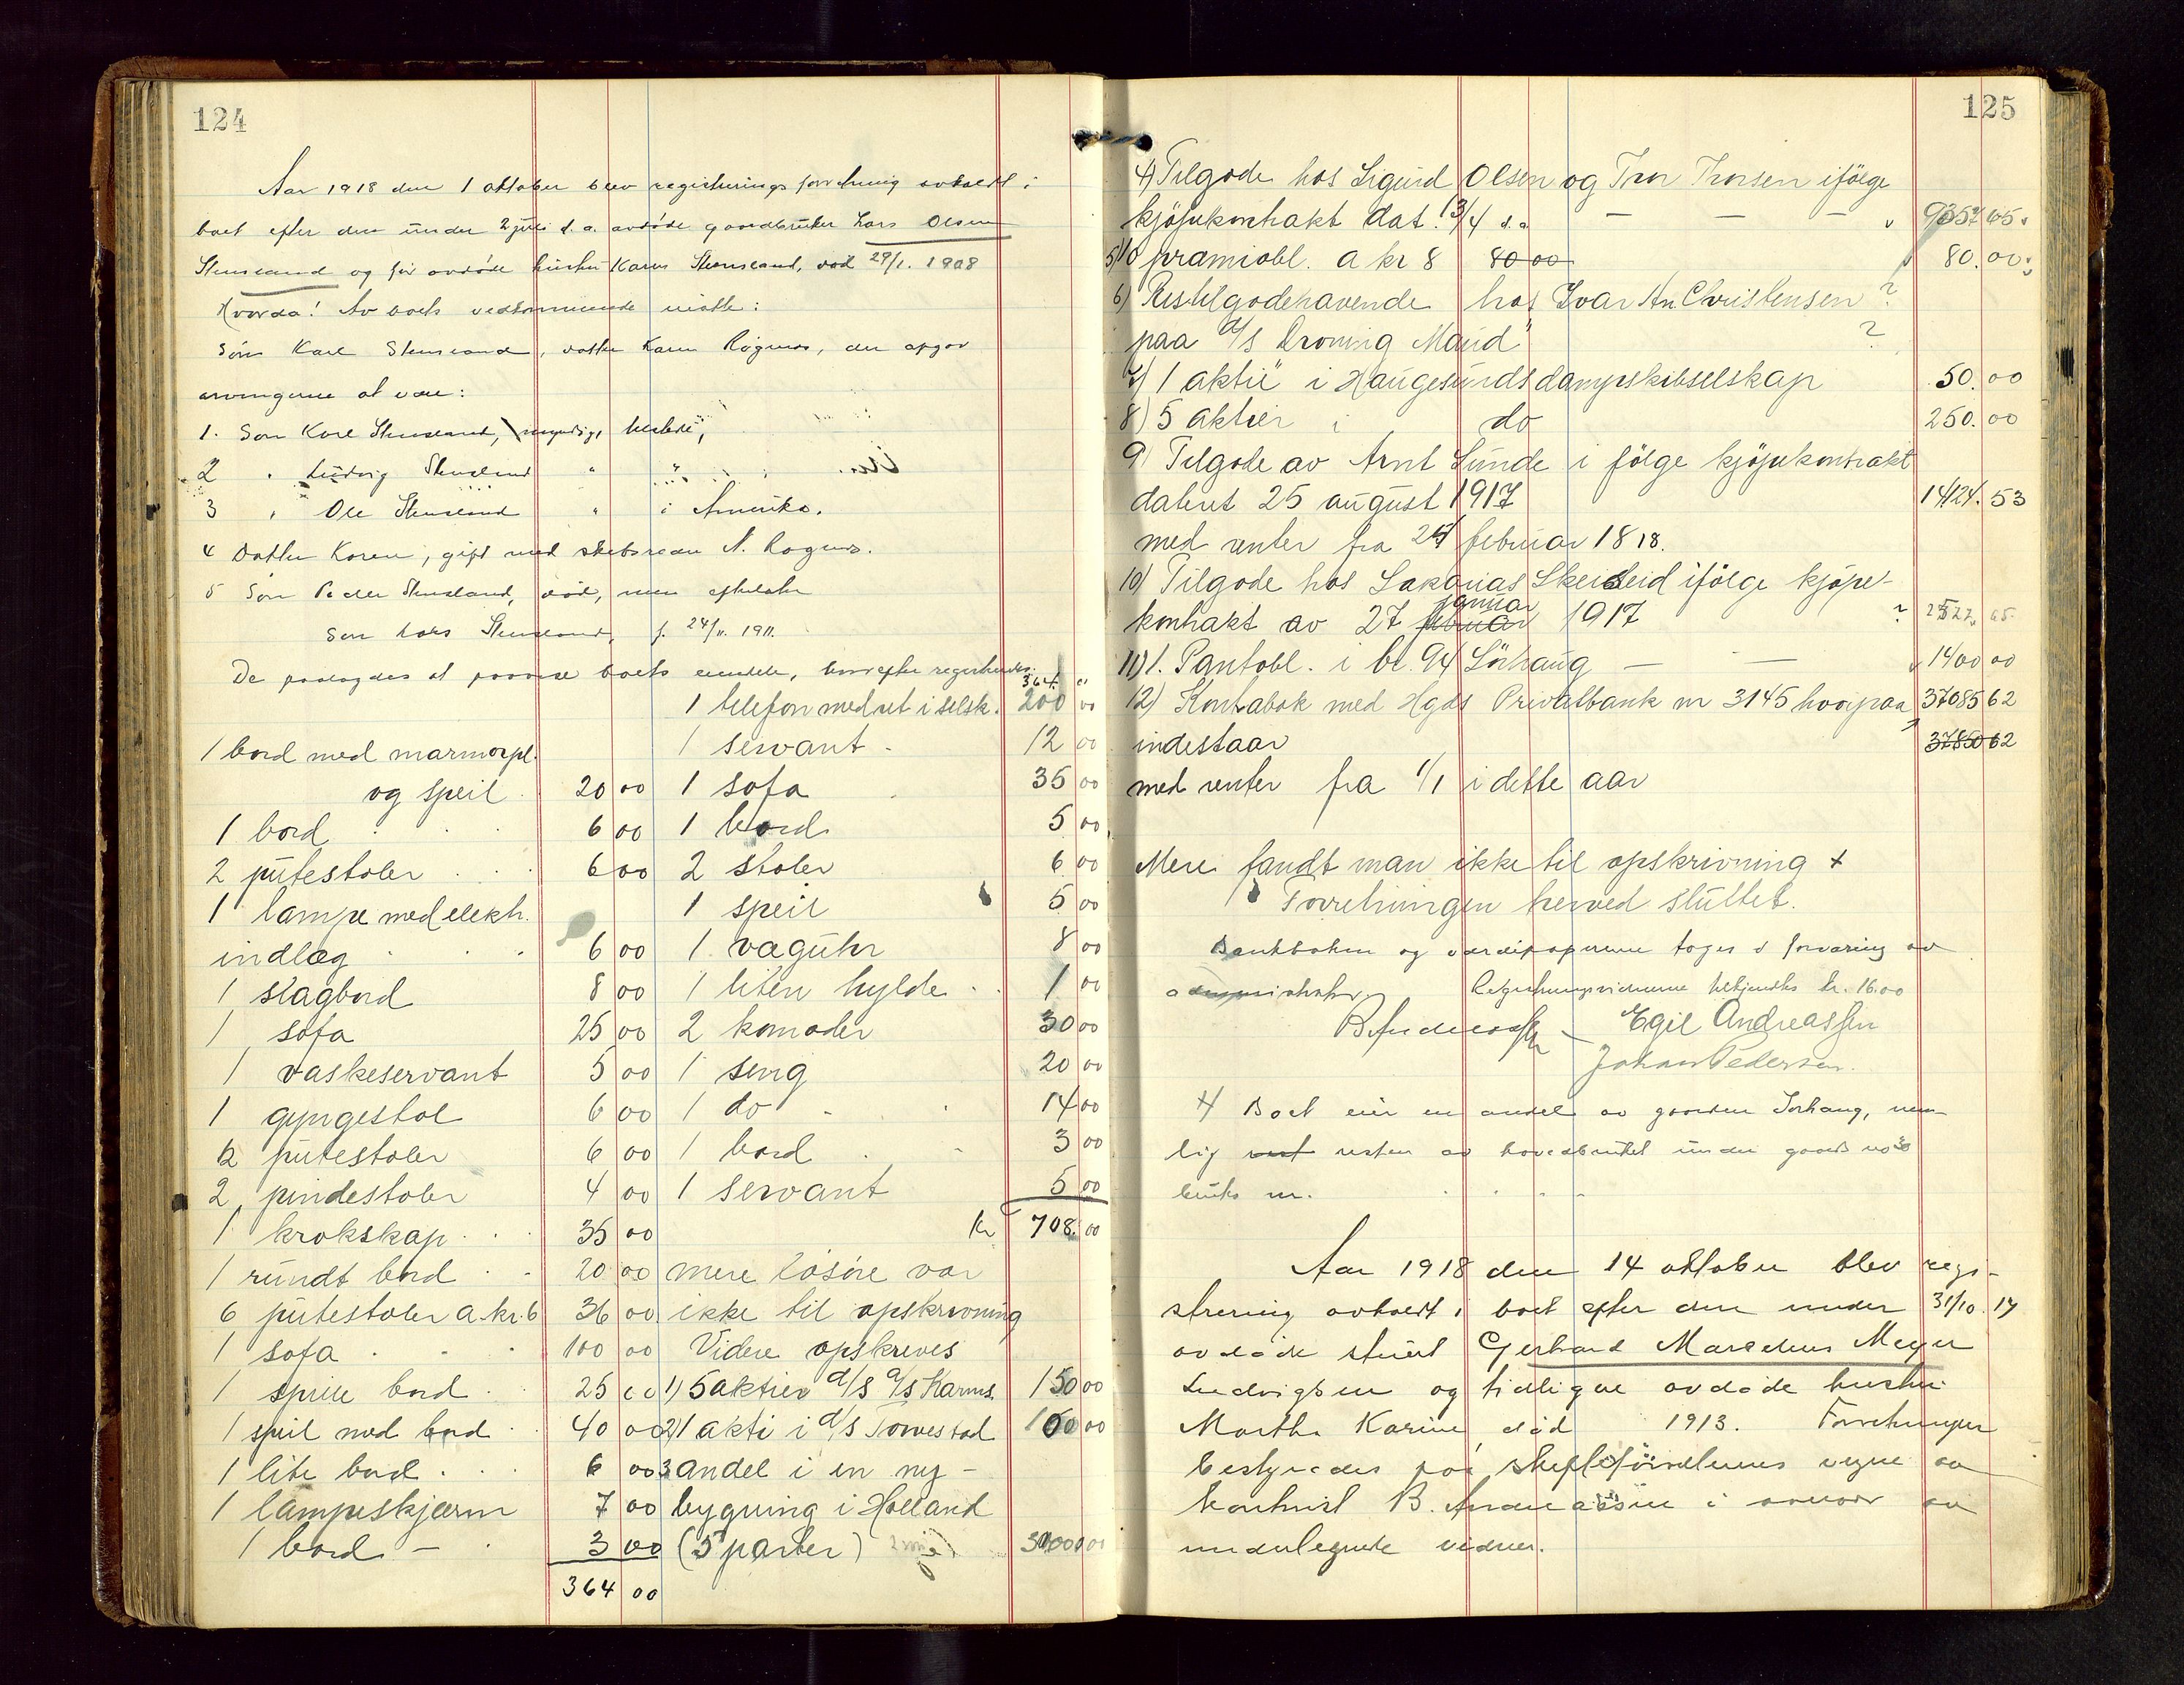 124
Aar 1918 den 1 oktober blev registreringsforretning avholdt i
boet efter den under 2 juli d. a. avdøde gaardbruker Lars Olsen
Stensland og før avdøde hustru Karen Stensland, död 29/1. 1908
Hvorda! Av boets vedkommende møtte:
Søn Karl Stensland, datter Karen Rogness, der opgav
arvingerne at være:
1. Søn Karl Stensland, myndig,
2 " Ludvig Stensland " "
3 " Ole Stensland " i Amerika.
4 Datter Karen, gift med skibsreder N. Rogness.
5 Søn Peder Stensland, död, men efterlater
søn Lars Stensland, f. 24/11. 1911.
De paalagdes at paavise boets eiendele, hvorefter registrertes:
1 bord med marmorpl.
og speil 20 00
1 bord 6 00
2 putestoler 6 00
1 lampe med elektr.
indlæg 6 00
1 slagbord 8 00
1 sofa 25 00
1 vaskeservant 5 00
1 gyngestol 6 00
2 putestoler 6 00
2 pindestoler 4 00
1 krokskap 35 00
1 rundt bord 20 00
6 putestoler a kr. 6 36 00
1 sofa 100 00
1 spise bord 25 00
1 speil med bord 40 00
1 lite bord 6 00
1 lampeskjærm 7 00
1 bord 3 00
364 00
364.
1 telefon med ret i selsk. 200 00
1 servant 12 00
1 sofa 35 00
1 bord 5 00
2 stoler 6 00
1 speil 5 00
1 væguhr 8 00
1 liten hylde 1 00
2 komoder 30 00
1 seng 20 00
1 do 14 00
1 bord 3 00
1 servant 5 00
Kr 708.00
mere løsøre var
ikke til opskrivning
Videre opskreves
1) 5 aktier d/s a/s Karms. 150 00
2) 1 akti i d/s Torvestad 100 00
3 andel i en ny-
bygning i Holland
(5 parter)
125
4) Tilgode hos Sigurd Olsen og Thor Thorsen ifölge
kjöpekontrakt dat. 13/4 d. a. — — —
5) 10 præmiobl. a kr 8 80 00 80.00
6) Resttilgodehavende hos Ivar An. Christensen ?
paa d/s Droning Maud" ?
7) 1 aktie i Haugesunds dampskibselskap 50.00
8) 5 aktier i do 250.00
9) Tilgode av Arnt Sunde i fölge kjöpekontrakt
dateret 25 august 1917 14124.53
med renter fra 25 februar 1818.
10) Tilgode hos Sakarias Skeiseid ifölge kjöpe-
januar
kontrakt av 27 februar 1917 ?
11) 1. Pantobl. i bl. 94 Sörhaug — — 1400 00
12) Kontrabok med Hgds Privatbank nr 3145 hvorpaa 37085 62
indestaar 37850 62
med renter fra 1/1 i dette aar
Mere fandt man ikke til opskrivning +
Forretningen herved sluttet.
Bankboken og værdipapirerne toges i forvaring av
administrator. Registreringsvidnerne tilkjendtes kr. 16.00
B. Andreassen Egil Andreassen
Johan Pedersen.
+) Boet eier en andel av gaarden Sørhaug, nem-
lig rest resten av hovedbruket under gaards no
bruks nr.
Aar 1918 den 14 oktober blev regi-
strering avholdt i boet efter den under 31/10. 17
avdøde stuert Gerhard Marselius Meyer
Ludvigsen og tidligere avdøde hustru
Martha Karine, død 1913. Forretningen
bestyredes paa skifteforvalterens vegne av
kontorist B. Andreassen i nærvær av
undertegnede vidner.